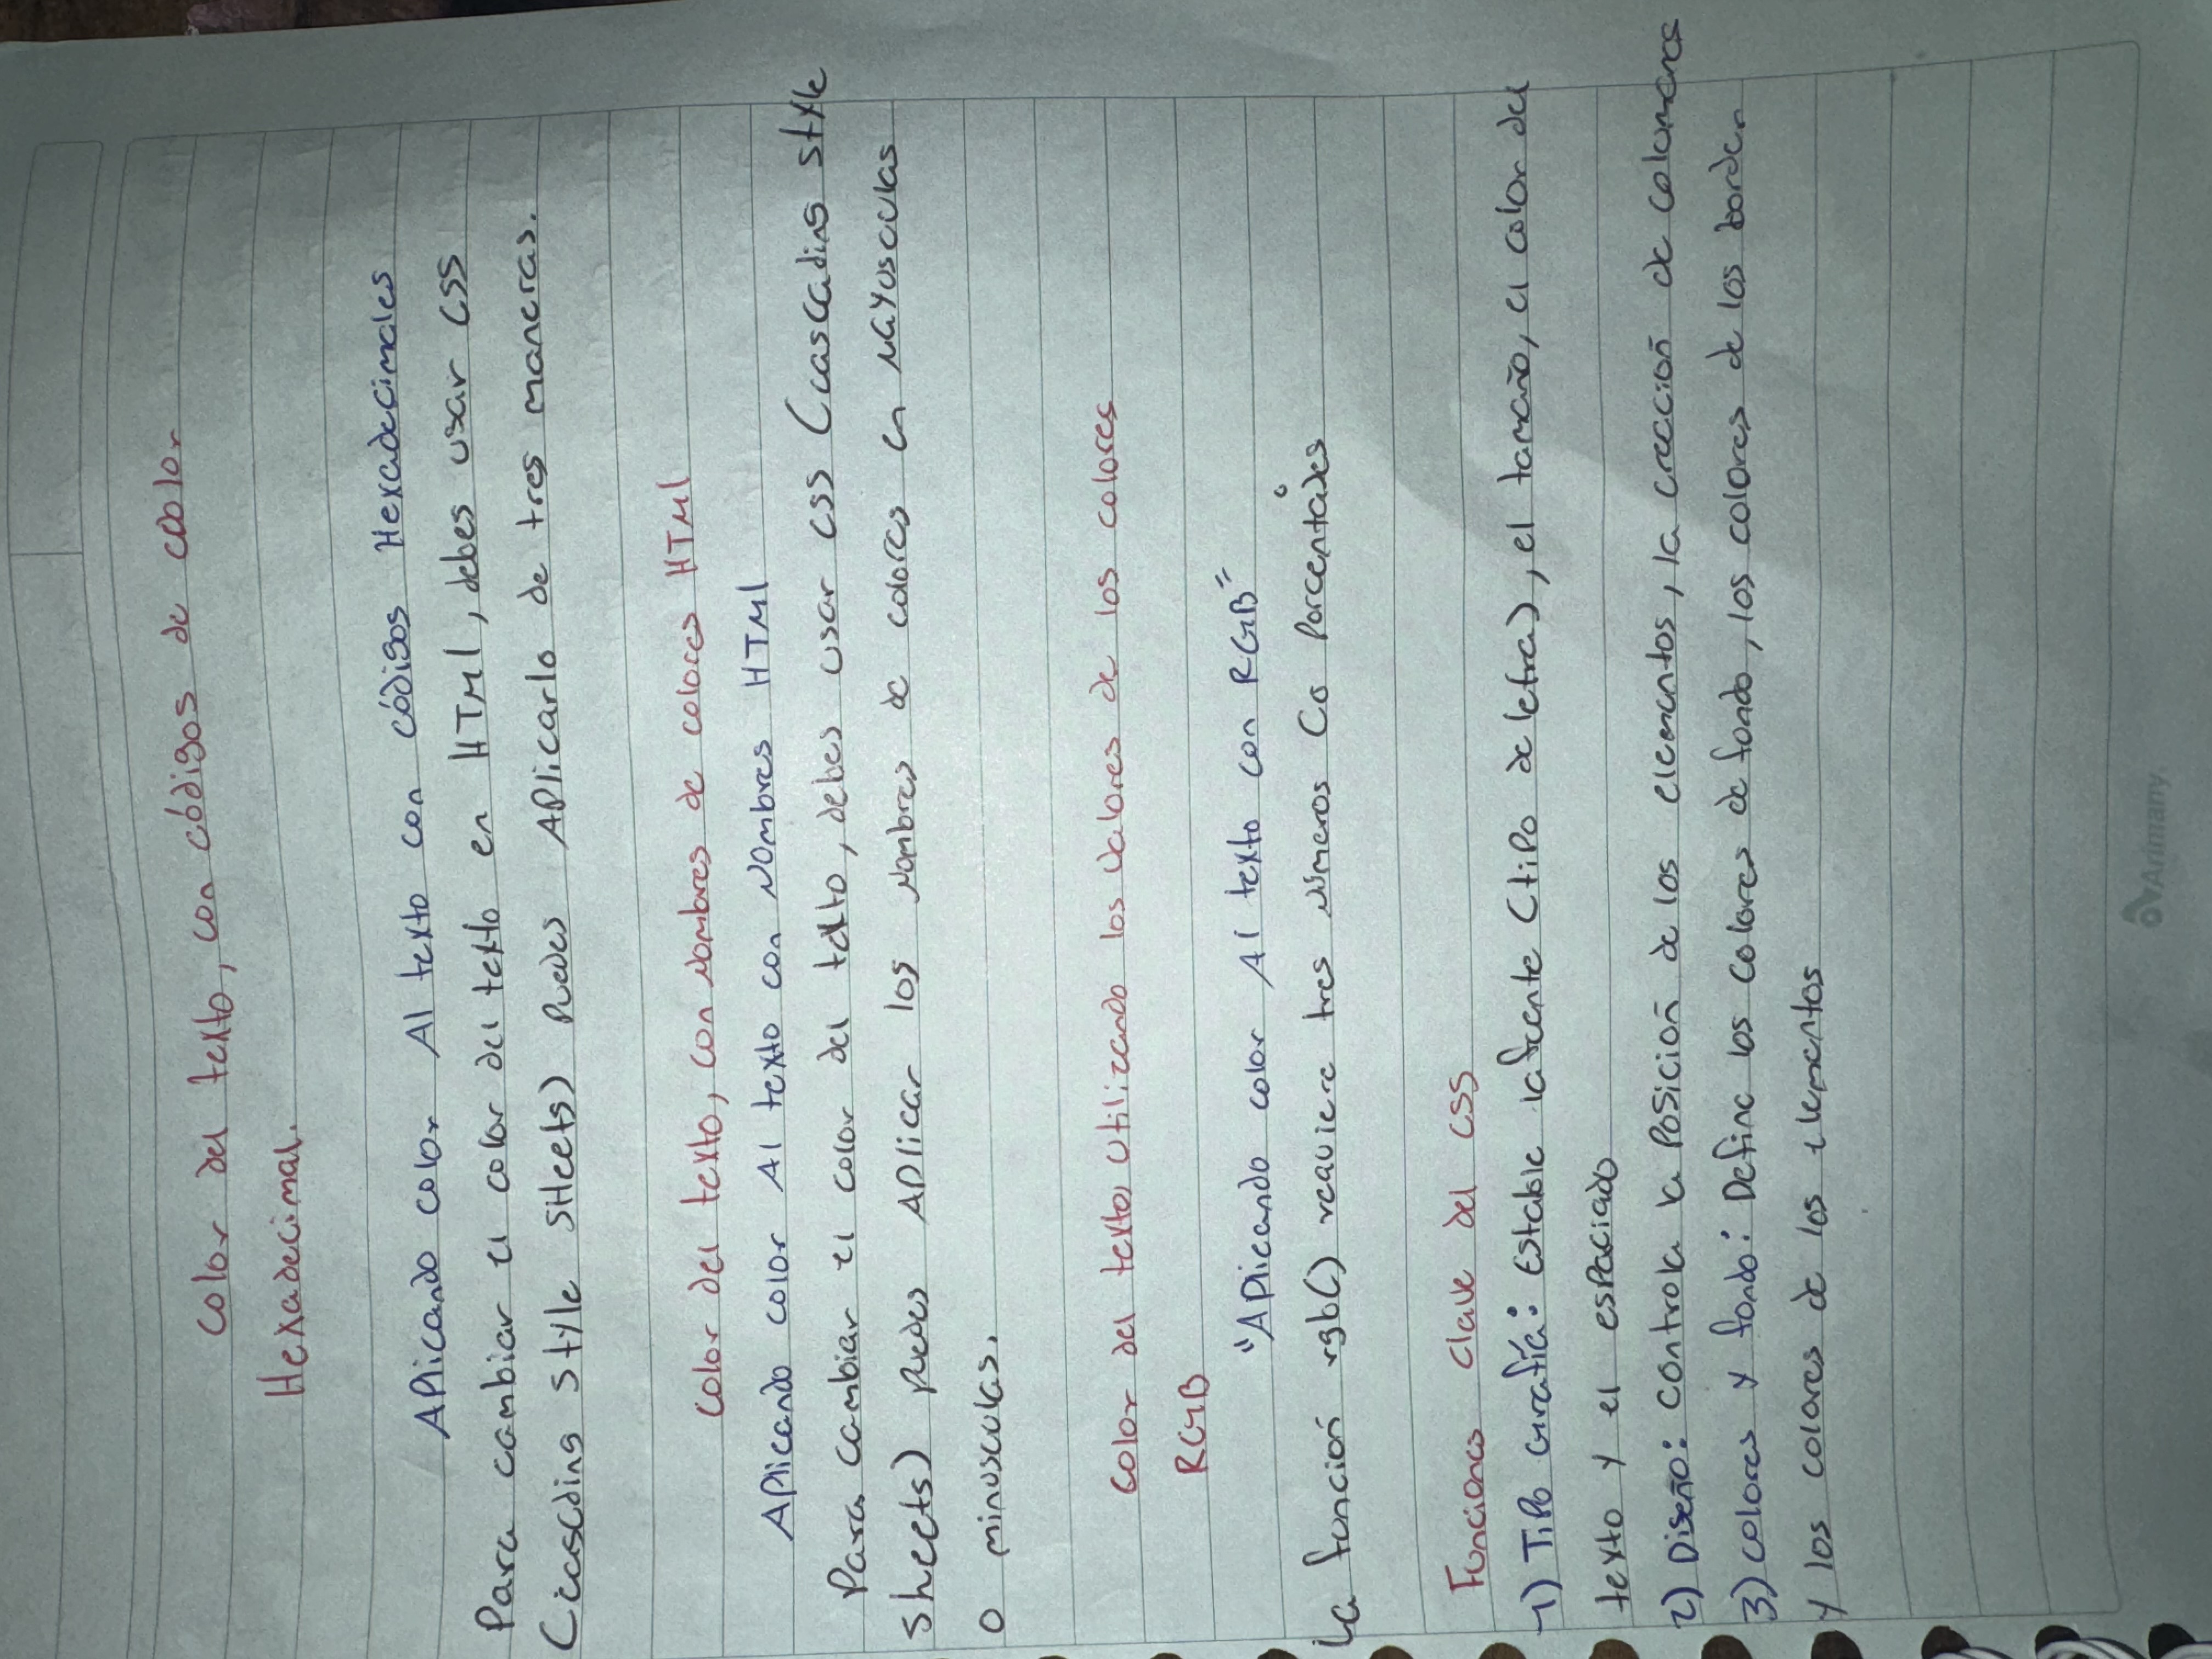 Color del texto, con códigos de color
Hexadecimal.
Aplicando color Al texto con códigos Hexadecimales
Para cambiar el color del texto en HTML, debes usar CSS
(Cascading style sheets) puedes Aplicarlo de tres maneras.
Color del texto, con Nombres de colores HTML
Aplicando color Al texto con Nombres HTML
Para cambiar el color del texto, debes usar CSS (cascading style
sheets) puedes Aplicar los Nombres de colores en Mayusculas
o minusculas.
Color del texto Utilizando los Valores de los colores
RGB
"Aplicando color Al texto con RGB"
La función rgb() requiere tres Números Co Porcentajes
Funciones clave del CSS
1) Tipo Grafía: Estable la fuente (tipo de letra), el tamaño, el color del
texto y el espaciado
2) Diseño: Controla la Posición de los elementos, la creación de columnas
3) colores y fondo: Define los colores de fondo, los colores de los borden
y los colores de los elementos
Arimany